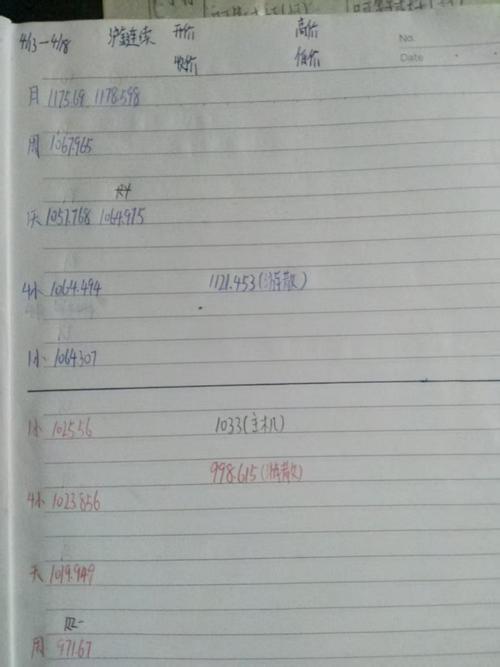 4/13-4/18 沪 连续 开价 高价 No.
收价 低价 Date
月 1175.69 1178.598
周 1067.965
天 1057.768 1064.975
4小 1064.494 1121.453(游散)
1小 1064.307
1小 1025.56 1033(主机)
998.615(游散)
4小 1023.856
天 1019.949
周一
周 971.67